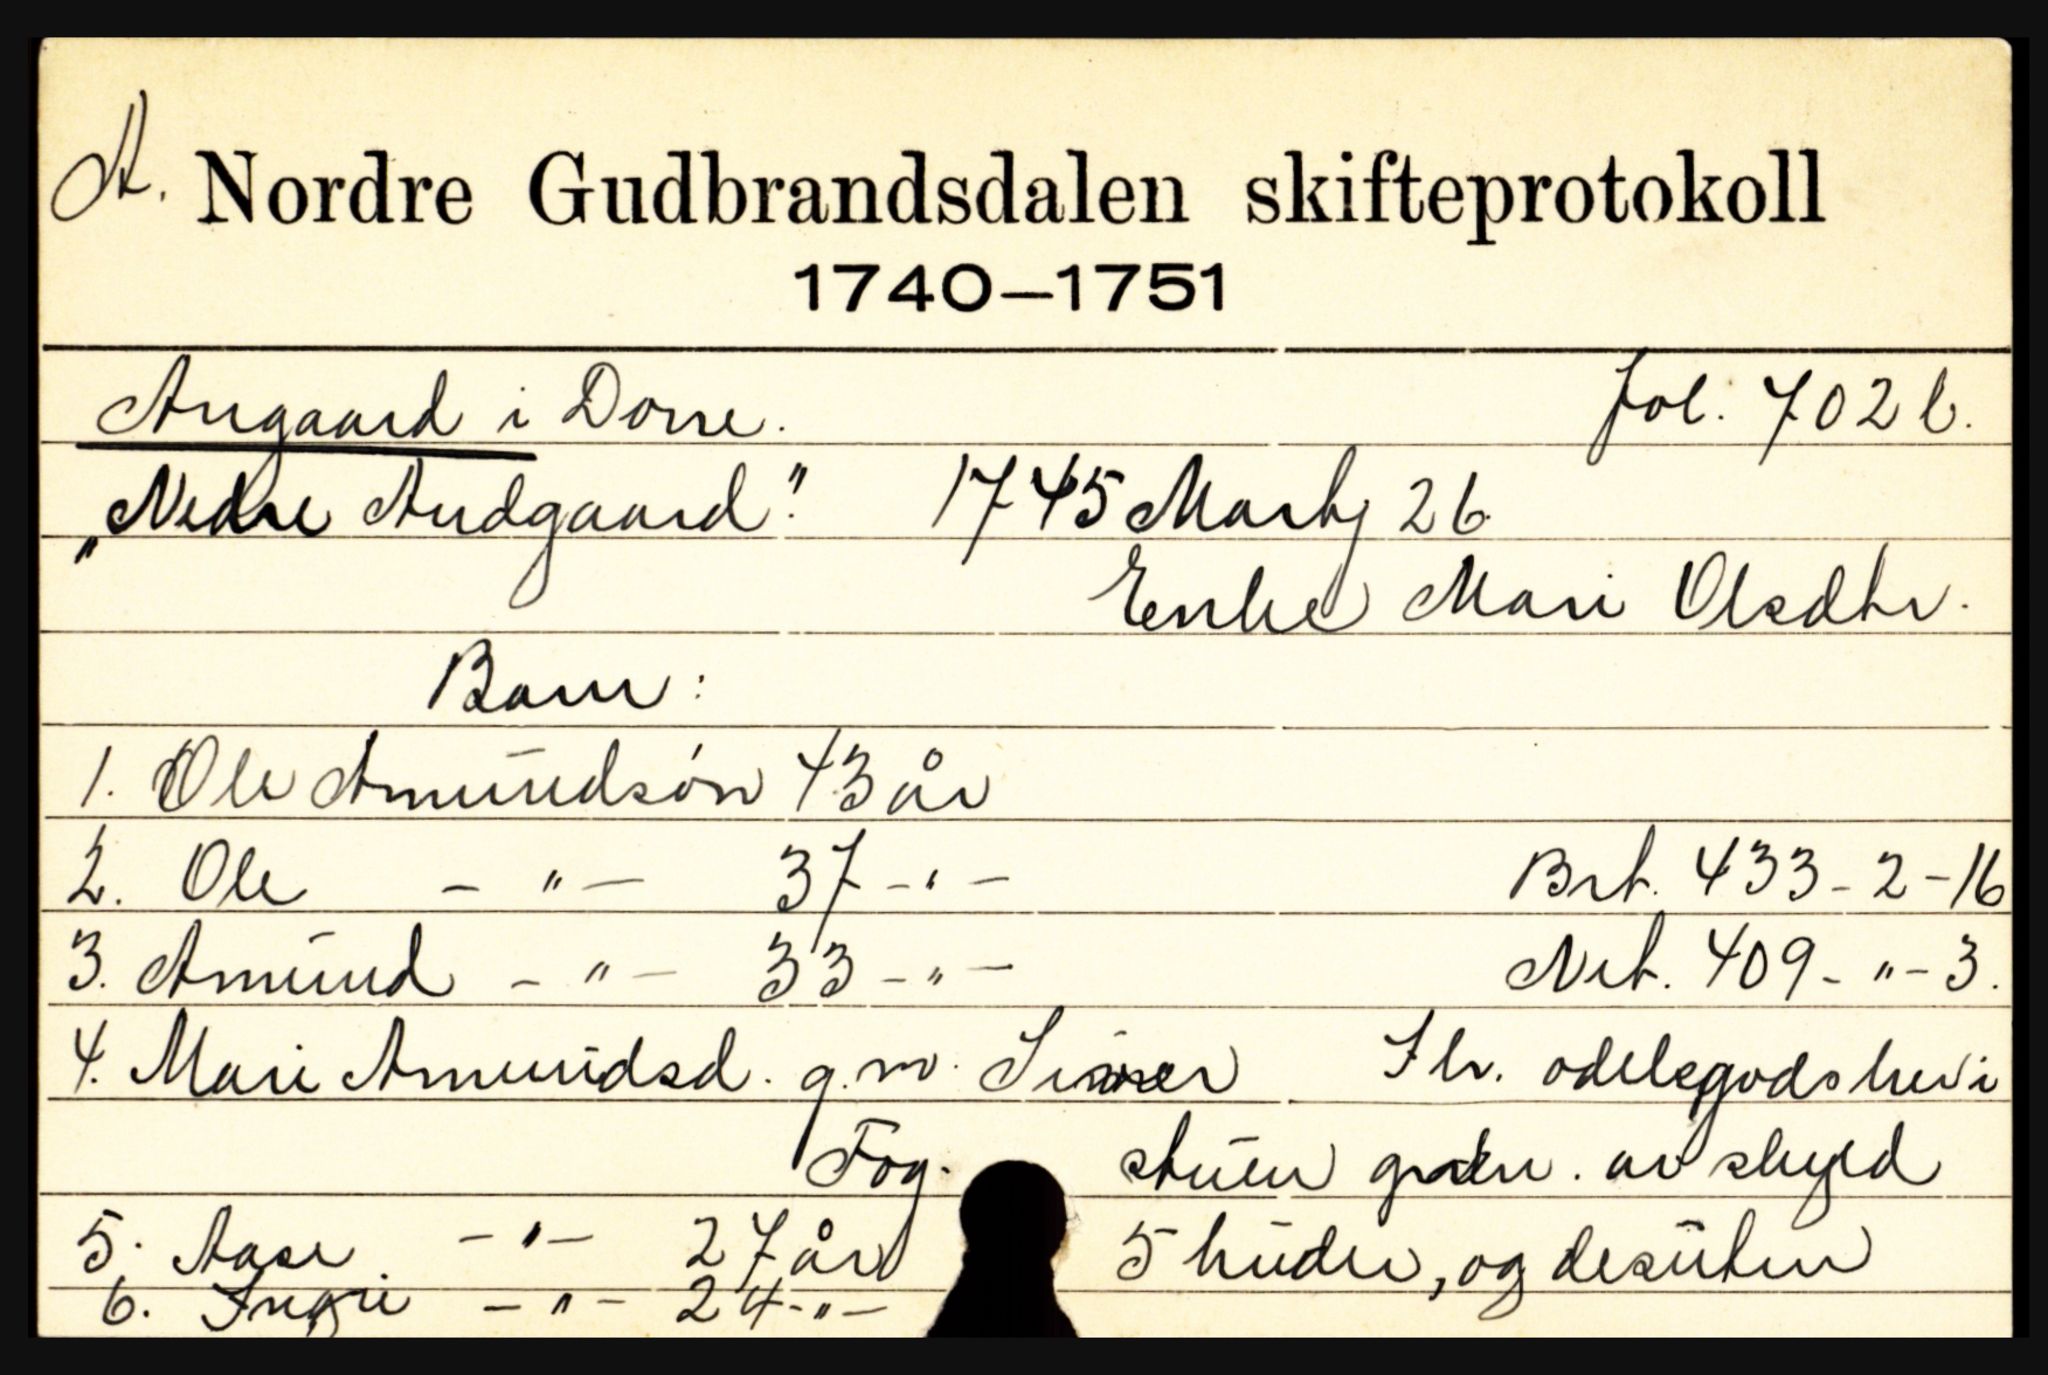 A. Nordre Gudbrandsdalen skifteprotokoll
1740—1751
Angaard i Dovre. fol. 702 b.
„Nedre Andgaard." 1745 Martj 26.
Enke Mari Olsdtr.
Barn:
1. Ole Amundsøn 43 år
2. Ole - " - 37 - " - Brt. 433 - 2 - 16
3. Amund - " - 33 - " - Net. 409 - " - 3.
4. Mari Amundsd. g. m. odelsgods her i
Fog. stuen av skyld
5. Aase - " - 27 år 5 huder, og desuten
6. Ingri - " - 24 - " -